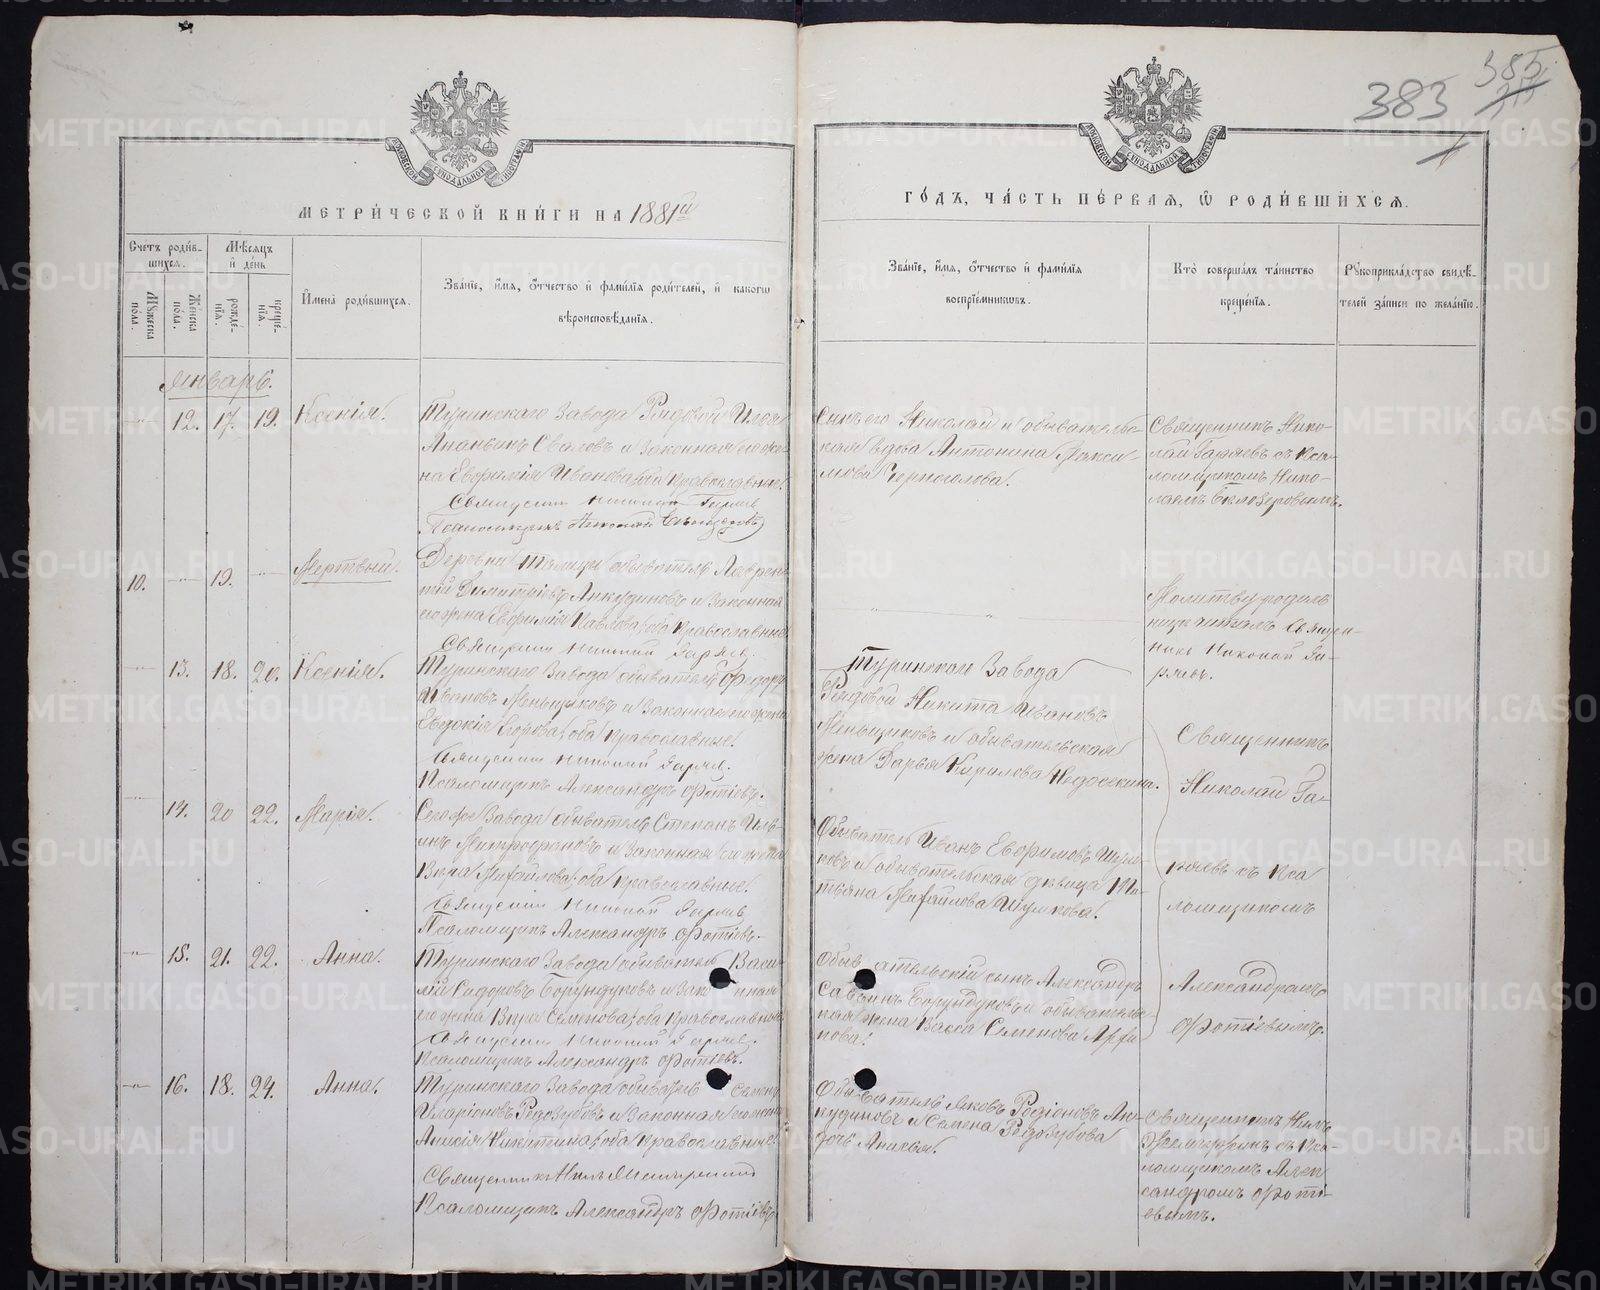 383
385
МЕТРИ́ЧЕСКОЙ КНИ́ГИ НА 1881й
ГО́ДЪ, ЧА́СТЬ ПЕ́РВАЯ, Ѡ РОДИ́ВШИХСЯ.
Счетъ роди́в-
шихся.
Мꙋжеска по́ла.
Же́нска по́ла.
Мѣ́сяцъ и де́нь
рожде́-
нїя.
креще́-
нїя.
И҆мена̀ роди́вшихся.
Зва́нїе, и҆́мя, ѻ҆́тчество и҆ фами́лїя роди́телей, и҆ како́гѡ
вѣроисповѣ́данїя.
Зва́нїе, и҆́мя, ѻ҆́тчество и҆ фами́лїя
воспрїе́мникѡвъ.
Кто̀ соверша́лъ та́инство
креще́нїя.
Рꙋкоприкла́дство свидѣ́-
телей за́писи по жела́нїю.
Январь.
12. 17. 19. Ксенія.
Туринскаго Завода Рядовой Илья
Ананьинъ и законная его же-
на Евфимія Иванова, оба Православные.
Священник Николай Гаряев
Псаломщикъ Николай
Сынъ его Николай и обыватель-
ская вдова Антонина Макси-
мова Черноголова.
Священникъ Нико-
лай Гаряевъ съ Пса-
ломщикомъ Нико-
лаемъ Бѣлозеровымъ.
10. 19. Мертвый.
Деревни Талицы обыватель Лаврен-
тій Димитріевъ Анкудиновъ и законная
его жена Евфимія Павлова, оба Православные
Священник Николай Гаряев.
Молитву родиль-
ницѣ читалъ Священ-
никъ Николай Га-
ряевъ.
13. 18. 20. Ксенія.
Туринскаго Завода обыватель Феодоръ
Ивановъ Меньщиковъ и законная его жена
Евдокія Егорова, оба православные.
Священник Николай Гаряев.
Псаломщикъ Александръ Фотіевъ.
Туринскаго Завода
Рядовой Никита Ивановъ
Меньщиковъ и обывательская
жена Дарья Кирилова Недосекина.
Священникъ
Николай Га-
14. 20 22. Марія.
Сегоже Завода обыватель Степанъ Иль-
инъ Митрофановъ и законная его жена
Вѣра Михайлова, оба православные.
Священник Николай Гаряев
Псаломщикъ Александръ Фотіевъ.
Обыватель Иванъ Евфимовъ Шум-
ковъ и обывательская дѣвица Та-
тьяна Михайлова Шумкова.
ряевъ съ Пса
ломщикомъ
15. 21. 22. Анна.
Туринскаго Завода обыватель Васи-
лій Сидоровъ Борундуковъ и законная
его жена Вѣра Семенова, оба православные
Священник Николай Гаряев.
Псаломщикъ Александръ Фотіевъ.
Обывательскій сынъ Александръ
Саввинъ Борундуковъ и обыватель-
ская жена Васса Семенова
пова.
Александромъ
Фотіевымъ.
16. 18. 24. Анна.
Туринскаго Завода обыватель Семенъ
Иларіоновъ Рѣдозубовъ и законная его жена
Анисія Никитина, оба православные.
Священникъ Нилъ
Псаломщикъ Александръ Фотіевъ
Обыватель Яковъ Родіоновъ Ан-
кудиновъ и Семена Рѣдозубова
дочь
Священникъ Нилъ
съ Пса-
ломщикомъ Алек-
сандромъ Фоті-
евымъ.
METRIKI.GASO-URAL.RU